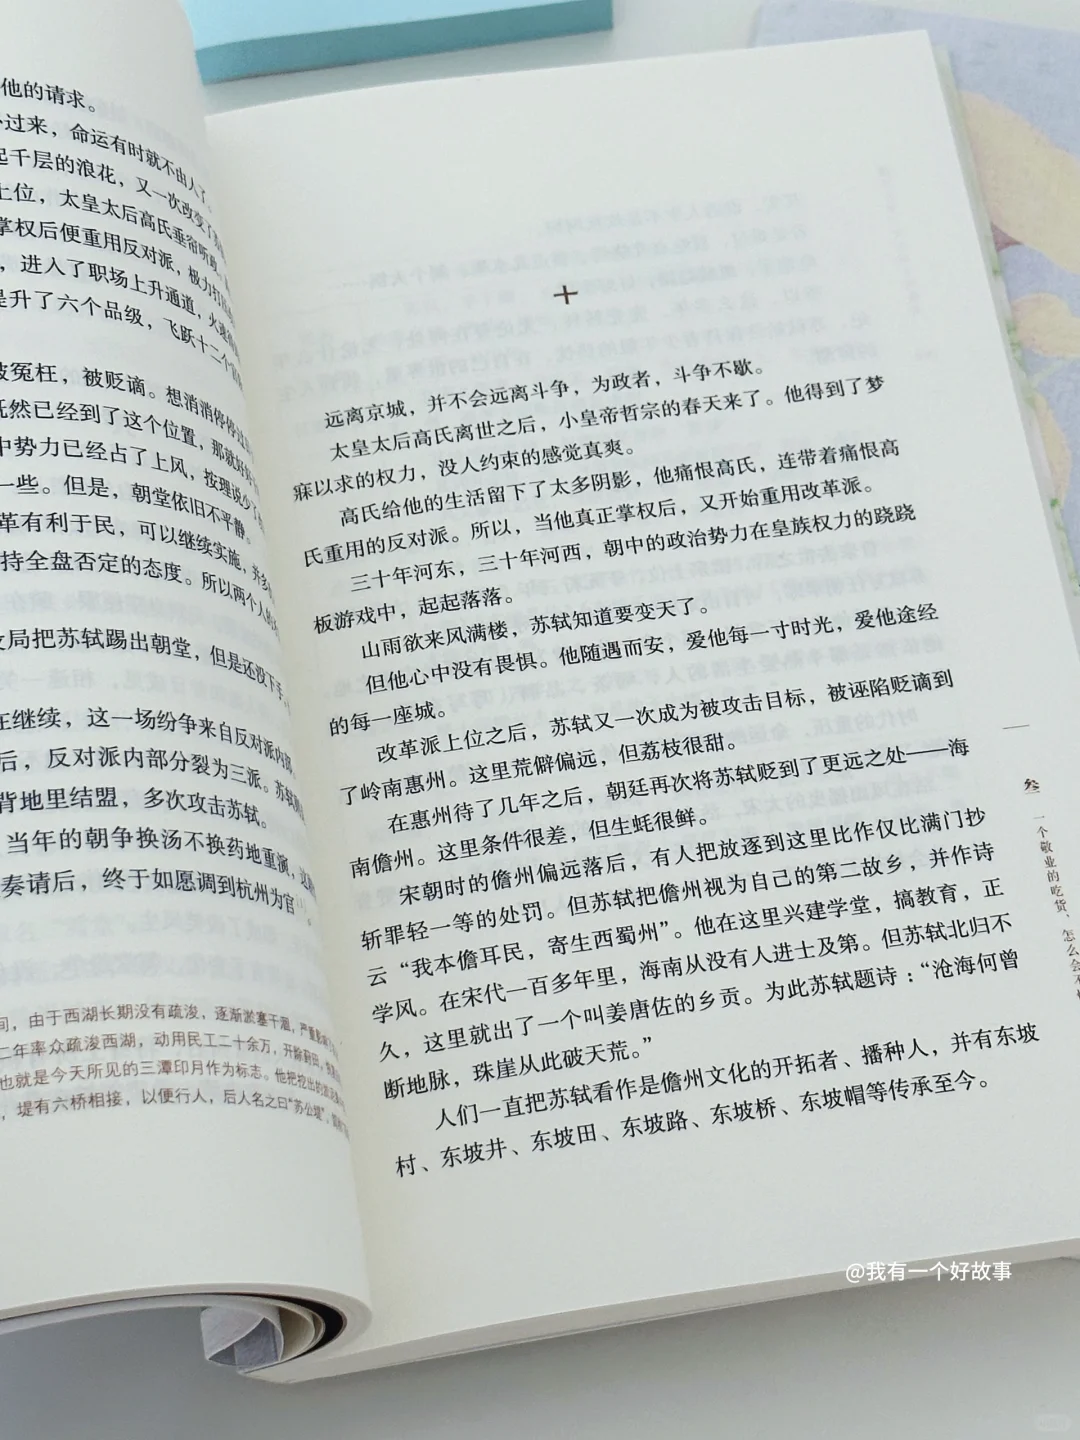 他的请求。
过来，命运有时就不由人了。
起千层的浪花，又一次改变了
上位，太皇太后高氏垂帘听政。
掌权后便重用反对派，极力打
，进入了职场上升通道，火速
提升了六个品级，飞跃十二个官
被冤枉，被贬谪。想消消停停过
既然已经到了这个位置，那就好好
中势力已经占了上风，按理说少了
一些。但是，朝堂依旧不平静。
革有利于民，可以继续实施，
持全盘否定的态度。所以两个人的
设局把苏轼踢出朝堂，但是还没下手，
在继续，这一场纷争来自反对派内部。
后，反对派内部分裂为三派。苏轼
背地里结盟，多次攻击苏轼。
当年的朝争换汤不换药地重演，这
奏请后，终于如愿调到杭州为官[1]。
间，由于西湖长期没有疏浚，逐渐淤塞干涸，严重影
二年率众疏浚西湖，动用民工二十余万，开除葑田，
也就是今天所见的三潭印月作为标志。他把挖出的
，堤有六桥相接，以便行人，后人名之曰“苏公堤”，
十
远离京城，并不会远离斗争，为政者，斗争不歇。
太皇太后高氏离世之后，小皇帝哲宗的春天来了。他得到了梦
寐以求的权力，没人约束的感觉真爽。
高氏给他的生活留下了太多阴影，他痛恨高氏，连带着痛恨高
氏重用的反对派。所以，当他真正掌权后，又开始重用改革派。
三十年河东，三十年河西，朝中的政治势力在皇族权力的跷跷
板游戏中，起起落落。
山雨欲来风满楼，苏轼知道要变天了。
但他心中没有畏惧。他随遇而安，爱他每一寸时光，爱他途经
的每一座城。
改革派上位之后，苏轼又一次成为被攻击目标，被诬陷贬谪到
了岭南惠州。这里荒僻偏远，但荔枝很甜。
在惠州待了几年之后，朝廷再次将苏轼贬到了更远之处——海
南儋州。这里条件很差，但生蚝很鲜。
宋朝时的儋州偏远落后，有人把放逐到这里比作仅比满门抄
斩罪轻一等的处罚。但苏轼把儋州视为自己的第二故乡，并作诗
云“我本儋耳民，寄生西蜀州”。他在这里兴建学堂，搞教育，正
学风。在宋代一百多年里，海南从没有人进士及第。但苏轼北归不
久，这里就出了一个叫姜唐佐的乡贡。为此苏轼题诗：“沧海何曾
断地脉，珠崖从此破天荒。”
人们一直把苏轼看作是儋州文化的开拓者、播种人，并有东坡
村、东坡井、东坡田、东坡路、东坡桥、东坡帽等传承至今。
叁
一个敬业的吃货，怎么会不
@我有一个好故事